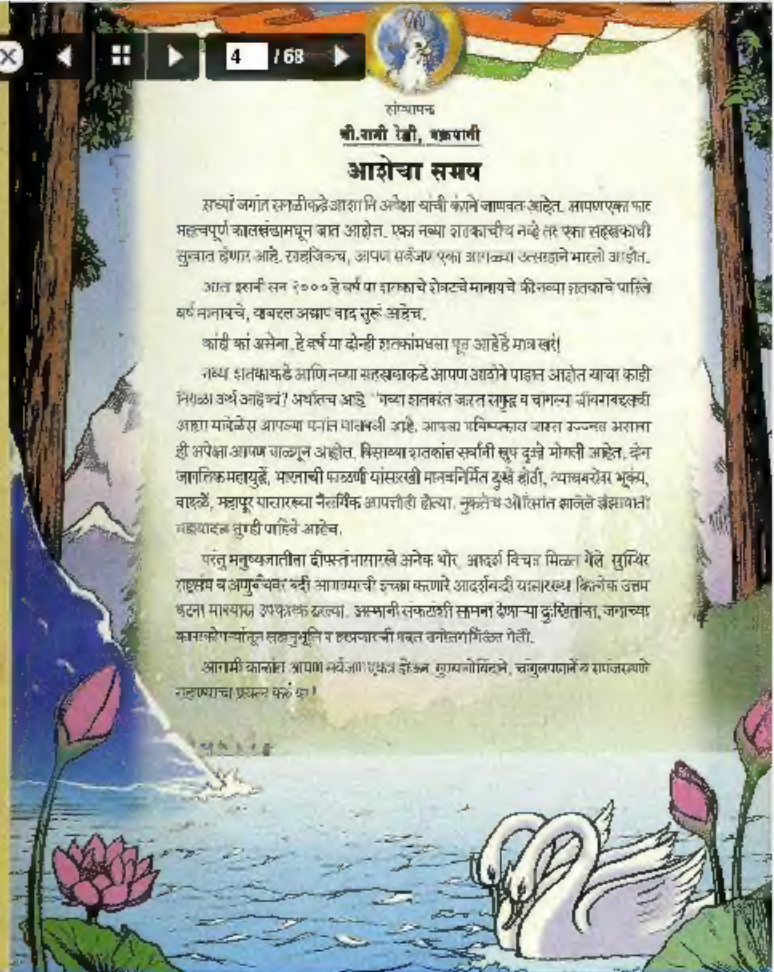 4 / 68
संस्थापक
बी.नागी रेड्डी, चक्रपाणी
आशेचा समय
सध्यां जगांत सगळीकडे आशा नि अपेक्षा यांची कंपने जाणवत आहेत. आपण एका फार
महत्वपूर्ण कालखंडामधून जात आहोत. एका नव्या शतकाचीच नव्हे तर एका सहस्रकाची
सुरुवात होणार आहे. साहजिकच, आपण सर्वजण एका आगळ्या उत्साहाने भारलो आहोत.
आता इसवी सन २००० हे वर्ष या शतकाचे शेवटचे मानायचे की नव्या शतकाचे पहिले
वर्ष मानायचे, याबद्दल अद्याप वाद सुरूं आहेच.
कांही कां असेना. हे वर्ष या दोन्ही शतकांमधला पूल आहे हे मात्र खरं!
नव्या शतकाकडे आणि नव्या सहस्रकाकडे आपण आशेने पाहात आहोत याचा काही
निराळा अर्थ आहे कां? अर्थातच आहे. नव्या शतकांत जास्त समृद्ध व चांगल्या जीवनाबद्दलची
आशा यावेळेस आपल्या मनांत आहे. आपला
ही अपेक्षा आपण बाळगून आहोत. विसाव्या शतकांत सर्वांनी खूप दुःखे भोगली आहेत. दोन
जागतिक महायुद्धें, भारताची फाळणी यांसारखी मानवनिर्मित दुःखे होती, त्याचबरोबर भूकंप,
वादळें, महापूर यासारख्या नैसर्गिक आपत्तीही होत्या. नुकतेच ओरिसांत झालेले झंझावाती
तुम्ही पाहिले आहेच.
परंतु मनुष्यजातीला दीपस्तंभासारखे अनेक थोर, आदर्श विचार मिळत गेले. सुस्थिर
राष्ट्रसंघ व अणुबाँबवर बंदी आणण्याची इच्छा करणारे आदर्शवादी यासारख्या कित्येक उत्तम
घटना उपकारक ठरल्या. अस्मानी संकटाशी सामना देणाऱ्या दुःखितांना, जगाच्या
कानाकोपऱ्यांतून सहानुभूति व मदत मिळत गेली.
आगामी काळांत आपण सर्वजण एकत्र होऊन, गुण्यागोविंदाने, चांगुलपणाने व समंजसपणे
राहण्याचा प्रयत्न करूं या!